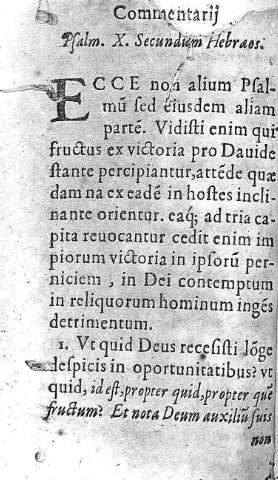 Commentarij
Psalm. X. Secundum Hebraos.
ECCE non alium Psal-
mũ sed eiusdem aliam
partẽ. Vidisti enim qui
fructus ex victoria pro Dauide
stante percipiantur, attẽde quæ
damna ex eadẽ in hostes incli-
nante orientur. eaq; ad tria ca-
pita reuocantur cedit enim im
piorum victoria in ipsorũ per-
niciem, in Dei contemptum
in reliquorum hominum inges
detrimentum.
1. Vt quid Deus recessisti lõge
despicis in oportunitatibus? vt
quid, id est, propter quid, propter quẽ
fructum? Et nota Deum auxiliũ suis
non